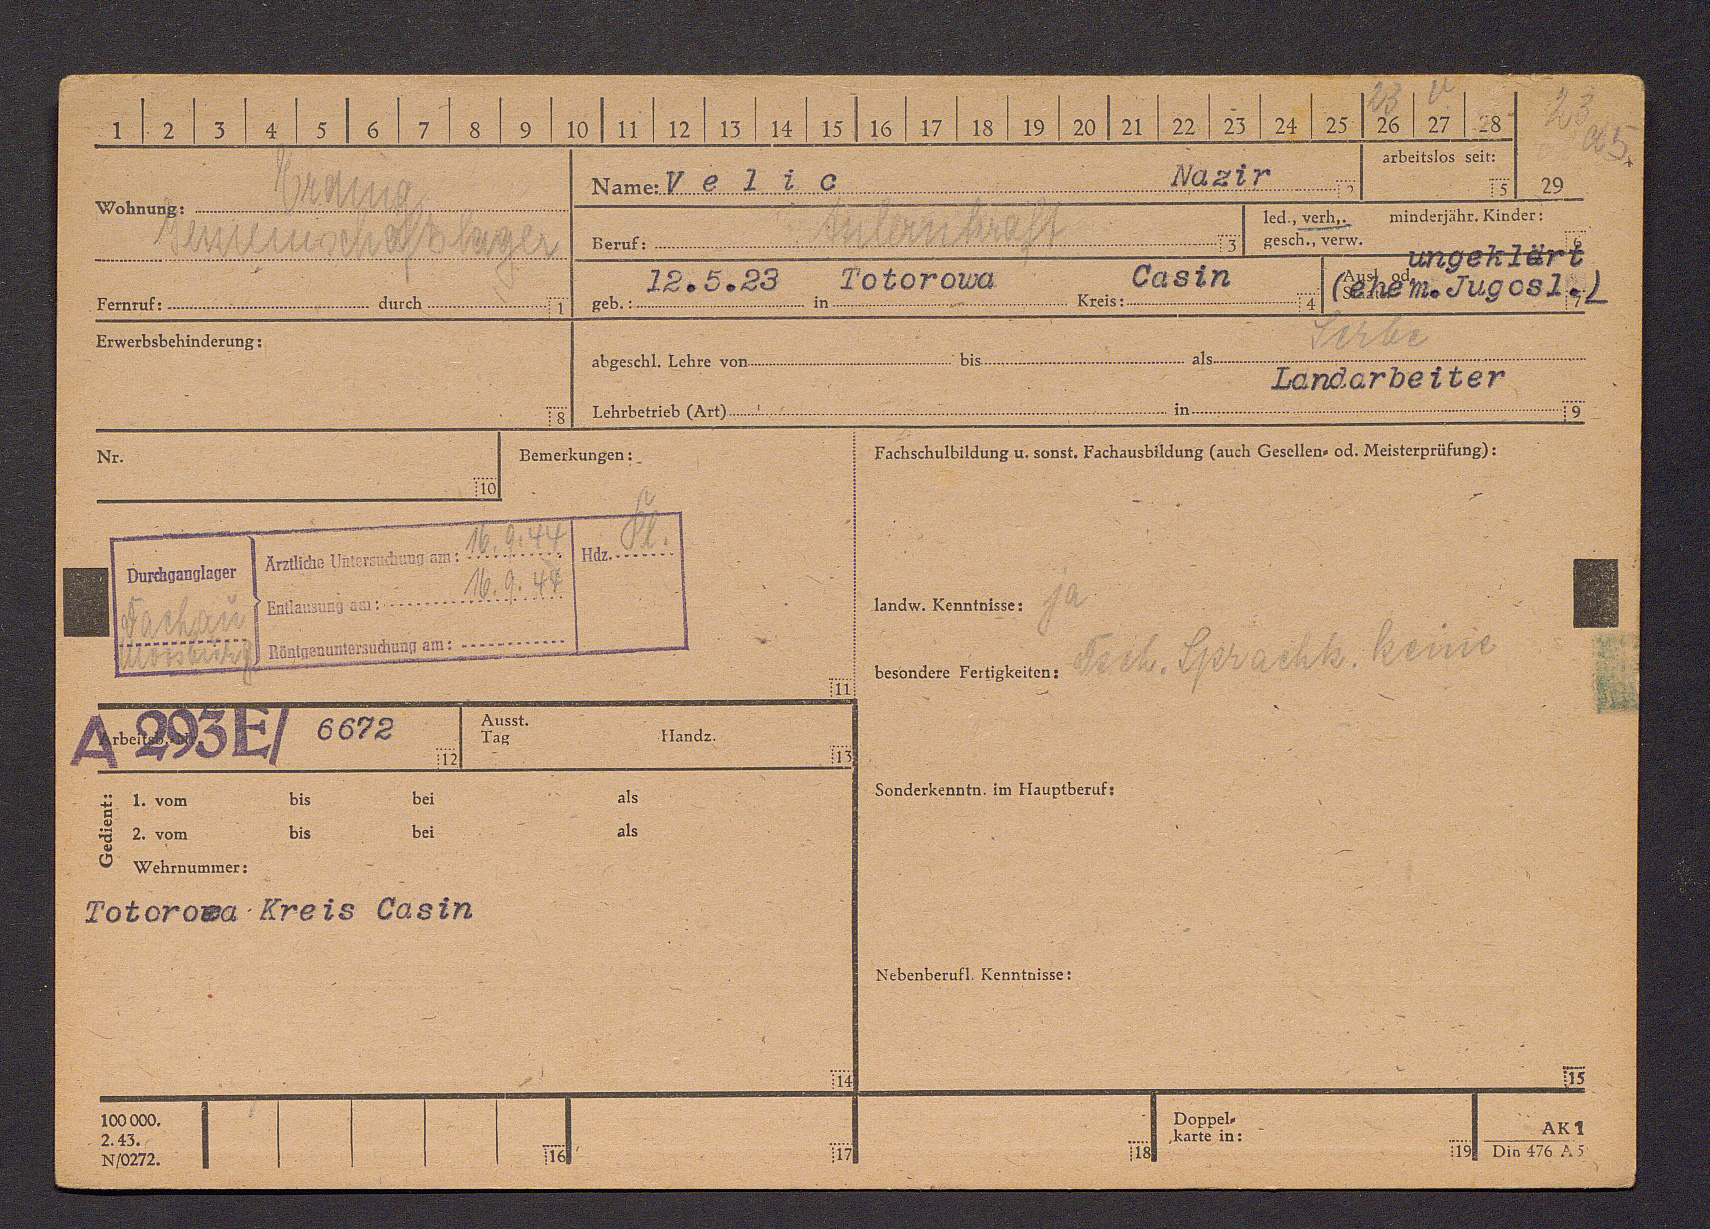 23 V
23
a5.
1 2 3 4 5 6 7 8 9 10 11 12 13 14 15 16 17 18 19 20 21 22 23 24 25 26 27 28
29
Wohnung: Erding,
Gemeinschaftslager
Fernruf: durch 1
Name: V e l i c Nazir 2
arbeitslos seit:
5
Beruf: Anlernkraft 3
led., verh., minderjähr. Kinder:
gesch., verw. 6
geb.: 12.5.23 in Totorowa Kreis: Casin 4
Ausl. od.
ungeklärt
(ehem.Jugosl.) 7
Serbe
Erwerbsbehinderung:
8
abgeschl. Lehre von bis als
Landarbeiter
Lehrbetrieb (Art) in 9
Nr.
10
Bemerkungen:
Durchganglager
Dachau
Moosburg
Ärztliche Untersuchung am: 16.9.44
Entlausung am: 16.9.44
Röntgenuntersuchung am:
Hdz.
11
Fachschulbildung u. sonst. Fachausbildung (auch Gesellen- od. Meisterprüfung):
landw. Kenntnisse: ja
besondere Fertigkeiten: Dtsch. Sprachk. keine
Sonderkenntn. im Hauptberuf:
Nebenberufl. Kenntnisse:
15
A 293E/ 6672
12
Ausst.
Tag Handz.
13
Gedient:
1. vom bis bei als
2. vom bis bei als
Wehrnummer:
Totorowa Kreis Casin
14
100 000.
2. 43.
N/0272.
16
17
18
Doppel-
karte in:
19
AK 1
Din 476 A 5